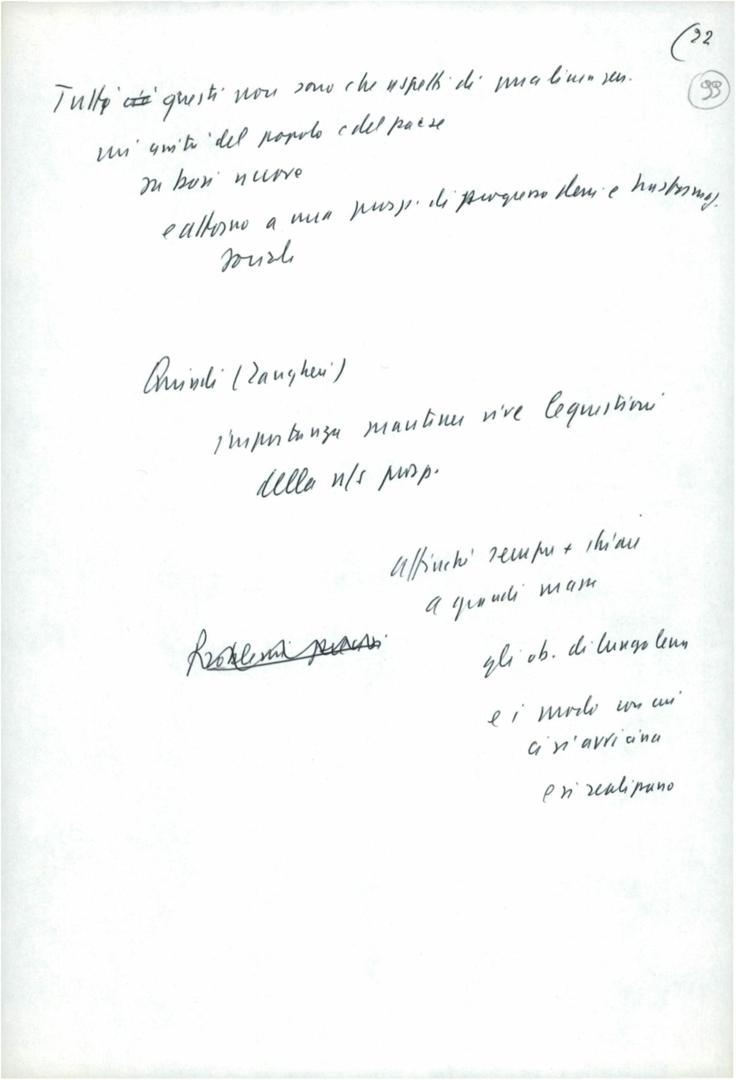 (22
99
Tutti ciò questi non sono che aspetti di una linea
unità del popolo e del paese
su basi nuove
e attorno a una prosp. di progresso dem e trasformaz.
sociale
Quindi (Zangheri)
importanza mantener vive le questioni
della n/s prosp.
affinché sempre + chiari
a grandi masse
gli ob. di lungo term
e i modo con cui
ci si avvicina
e si realizzano